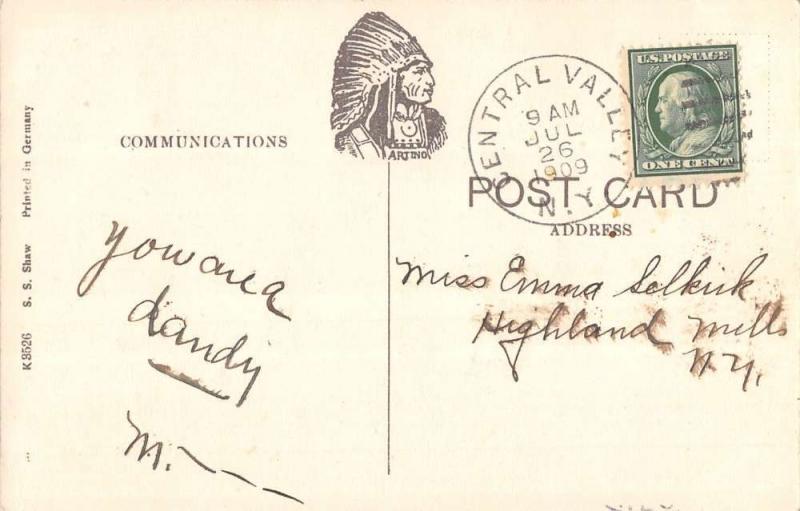 COMMUNICATIONS
ARTINO
CENTRAL VALLEY
9 AM
JUL
26
1909
N.Y.
U.S. POSTAGE
ONE CENT
POST CARD
ADDRESS
K 3526 S. S. Shaw Printed in Germany
You are a
dandy
M. - - -
Miss Emma Selkirk
Highland Mills
N.Y.